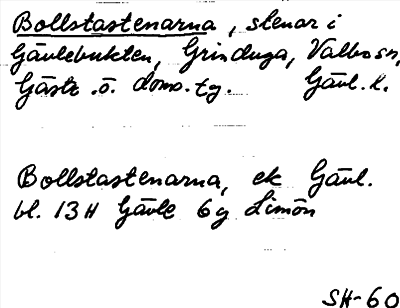 Bollstastenarna, stenar i
Gävlebukten, Grinduga, Valbo sn,
Gästr. ö. doms. tg. Gävl. k.
Bollstastenarna, ek Gävl.
bl. 13H Gävle 6g Limön
SH-60